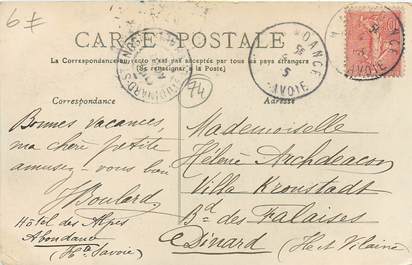 6f
CARTE POSTALE
La Correspondance au recto n'est pas acceptée par tous les pays étrangers
(Se renseigner à la Poste)
74
Correspondance
Adresse
Bonnes vacances,
ma chère petite
amusez-vous bien
J Boulard
Hôtel des Alpes
Abondance
(Hte Savoie)
Mademoiselle
Hélène Archdeacon
Villa Kronstadt
Bd des Falaises
Dinard (Ile et Vilaine